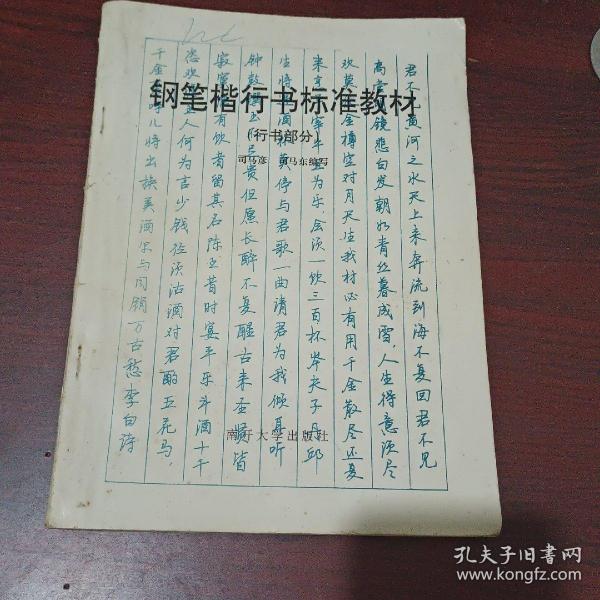 钢笔楷行书标准教材
（行书部分）
司马彦 司马东编写
南开大学出版社
君不见黄河之水天上来奔流到海不复回君不见
高堂明镜悲白发朝如青丝暮成雪，人生得意须尽
欢莫使金樽空对月天生我材必有用千金散尽还复
来烹羊宰牛且为乐，会须一饮三百杯岑夫子丹邱
生将进酒杯莫停与君歌一曲请君为我倾耳听
钟鼓馔玉不足贵但愿长醉不复醒古来圣贤皆
寂寞惟有饮者留其名陈王昔时宴平乐斗酒十千
恣欢谑主人何为言少钱径须沽酒对君酌五花马，
千金裘呼儿将出换美酒尔与同销万古愁李白诗
孔夫子旧书网
www.kongfz.com